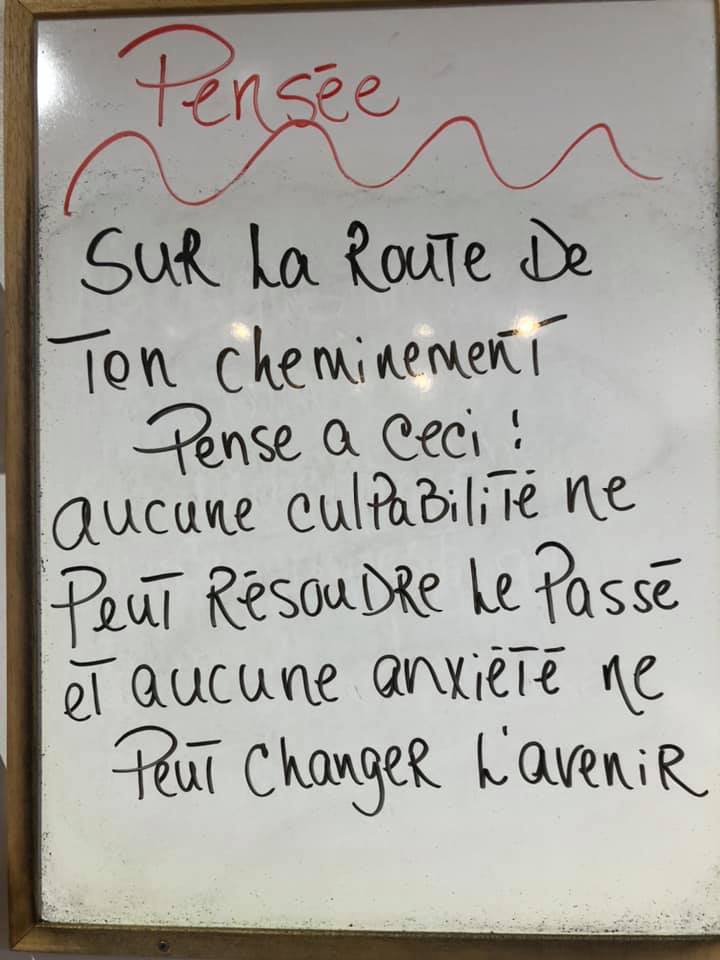 Pensée
SUR La ROUTE De
Ton cheminement
Pense a ceci !
aucune culpabilité ne
Peut Résoudre Le Passé
et aucune anxiété ne
Peut changer L'avenir